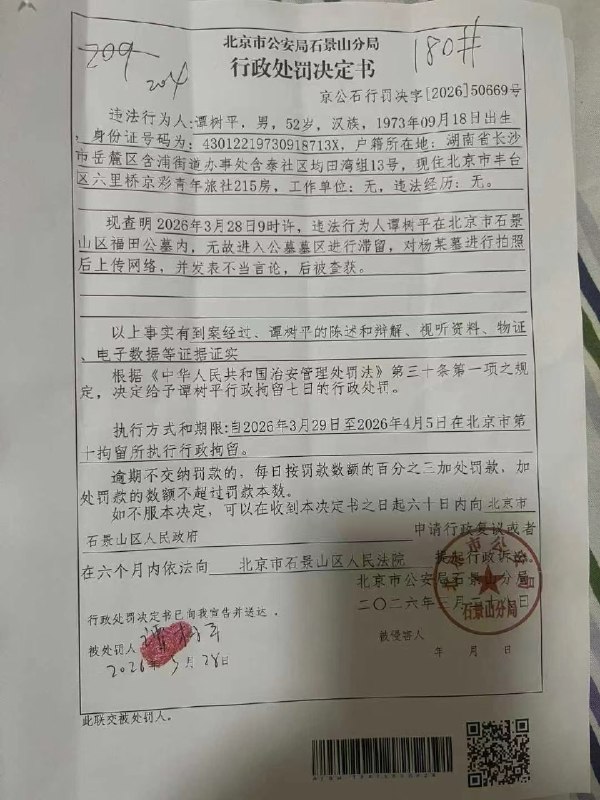 209
204
180#
北京市公安局石景山分局
行政处罚决定书
京公石行罚决字[2026]50669号
违法行为人:谭树平，男，52岁，汉族，1973年09月18日出生
，身份证号码为：43012219730918713X，户籍所在地：湖南省长沙
市岳麓区含浦街道办事处含泰社区均田湾组13号，现住北京市丰台
区六里桥京彩青年旅社215房，工作单位：无，违法经历：无。
现查明2026年3月28日9时许，违法行为人谭树平在北京市石景
山区福田公墓内，无故进入公墓墓区进行滞留，对杨某墓进行拍照
后上传网络，并发表不当言论，后被查获。
以上事实有到案经过、谭树平的陈述和辩解、视听资料、物证
、电子数据等证据证实
根据《中华人民共和国治安管理处罚法》第三十条第一项之规
定，决定给予谭树平行政拘留七日的行政处罚。
执行方式和期限:自2026年3月29日至2026年4月5日在北京市第
十拘留所执行行政拘留。
逾期不交纳罚款的，每日按罚款数额的百分之三加处罚款，加
处罚款的数额不超过罚款本数。
如不服本决定，可以在收到本决定书之日起六十日内向 北京市
石景山区人民政府 申请行政复议或者
在六个月内依法向 北京市石景山区人民法院 提起行政诉讼。
北京市公安局石景山分局
二〇二六年三月二十八日
石景山分局
行政处罚决定书已向我宣告并送达。
被处罚人 谭树平
2026年3月28日
被侵害人
年 月 日
此联交被处罚人。